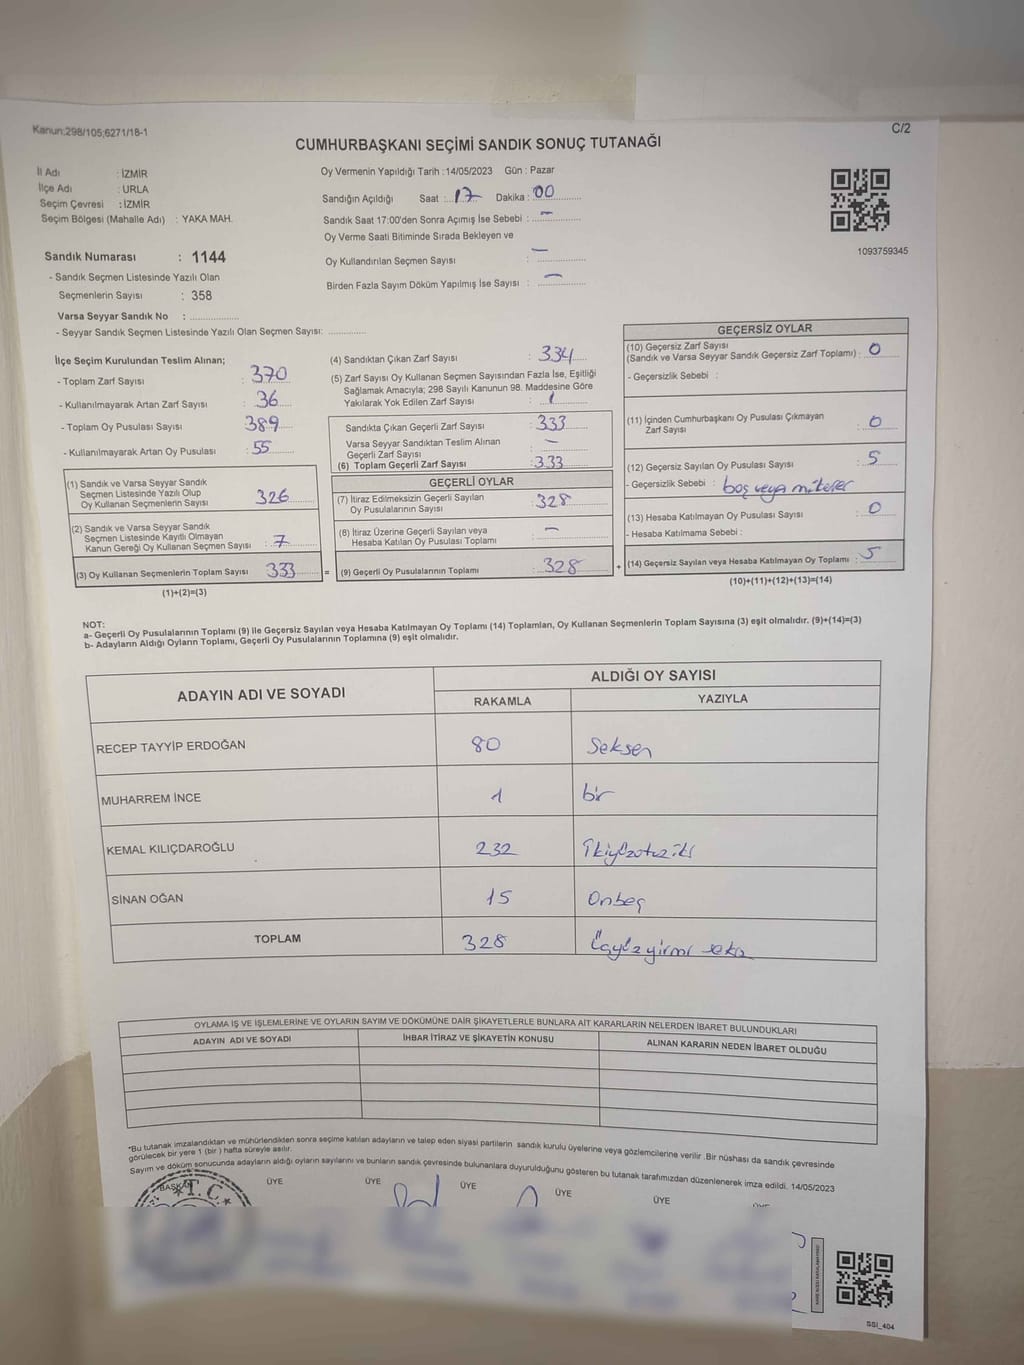 Kanun:298/105;6271/18-1
C/2
CUMHURBAŞKANI SEÇİMİ SANDIK SONUÇ TUTANAĞI
İl Adı : İZMİR
İlçe Adı : URLA
Seçim Çevresi : İZMİR
Seçim Bölgesi (Mahalle Adı) : YAKA MAH.
Sandık Numarası : 1144
- Sandık Seçmen Listesinde Yazılı Olan
Seçmenlerin Sayısı : 358
Varsa Seyyar Sandık No :
- Seyyar Sandık Seçmen Listesinde Yazılı Olan Seçmen Sayısı:
Oy Vermenin Yapıldığı Tarih :14/05/2023 Gün : Pazar
Sandığın Açıldığı Saat : 17 Dakika : 00
Sandık Saat 17:00'den Sonra Açımış İse Sebebi : -
Oy Verme Saati Bitiminde Sırada Bekleyen ve
Oy Kullandırılan Seçmen Sayısı : -
Birden Fazla Sayım Döküm Yapılmış İse Sayısı : -
1093759345
İlçe Seçim Kurulundan Teslim Alınan;
- Toplam Zarf Sayısı : 370
- Kullanılmayarak Artan Zarf Sayısı : 36
- Toplam Oy Pusulası Sayısı : 389
- Kullanılmayarak Artan Oy Pusulası : 55
(1) Sandık ve Varsa Seyyar Sandık
Seçmen Listesinde Yazılı Olup
Oy Kullanan Seçmenlerin Sayısı : 326
(2) Sandık ve Varsa Seyyar Sandık
Seçmen Listesinde Kayıtlı Olmayan
Kanun Gereği Oy Kullanan Seçmen Sayısı : 7
(3) Oy Kullanan Seçmenlerin Toplam Sayısı : 333
(1)+(2)=(3)
(4) Sandıktan Çıkan Zarf Sayısı : 334
(5) Zarf Sayısı Oy Kullanan Seçmen Sayısından Fazla İse, Eşitliği
Sağlamak Amacıyla; 298 Sayılı Kanunun 98. Maddesine Göre
Yakılarak Yok Edilen Zarf Sayısı : 1
Sandıkta Çıkan Geçerli Zarf Sayısı : 333
Varsa Seyyar Sandıktan Teslim Alınan
Geçerli Zarf Sayısı : -
(6) Toplam Geçerli Zarf Sayısı :333
GEÇERLİ OYLAR
(7) İtiraz Edilmeksizin Geçerli Sayılan
Oy Pusulalarının Sayısı : 328
(8) İtiraz Üzerine Geçerli Sayılan veya
Hesaba Katılan Oy Pusulası Toplamı : -
= (9) Geçerli Oy Pusulalarının Toplamı : 328 +
GEÇERSİZ OYLAR
(10) Geçersiz Zarf Sayısı
(Sandık ve Varsa Seyyar Sandık Geçersiz Zarf Toplamı) : 0
- Geçersizlik Sebebi :
(11) İçinden Cumhurbaşkanı Oy Pusulası Çıkmayan
Zarf Sayısı : 0
(12) Geçersiz Sayılan Oy Pusulası Sayısı : 5
- Geçersizlik Sebebi : boş veya
(13) Hesaba Katılmayan Oy Pusulası Sayısı : 0
- Hesaba Katılmama Sebebi :
(14) Geçersiz Sayılan veya Hesaba Katılmayan Oy Toplamı : 5
(10)+(11)+(12)+(13)=(14)
NOT:
a- Geçerli Oy Pusulalarının Toplamı (9) ile Geçersiz Sayılan veya Hesaba Katılmayan Oy Toplamı (14) Toplamları, Oy Kullanan Seçmenlerin Toplam Sayısına (3) eşit olmalıdır. (9)+(14)=(3)
b- Adayların Aldığı Oyların Toplamı, Geçerli Oy Pusulalarının Toplamına (9) eşit olmalıdır.
ADAYIN ADI VE SOYADI
ALDIĞI OY SAYISI
RAKAMLA YAZIYLA
RECEP TAYYİP ERDOĞAN 80 Seksen
MUHARREM İNCE 1 bir
KEMAL KILIÇDAROĞLU 232 İkiyüzotuziki
SİNAN OĞAN 15 Onbeş
TOPLAM 328 Üçyüzyirmi sekiz
OYLAMA İŞ VE İŞLEMLERİNE VE OYLARIN SAYIM VE DÖKÜMÜNE DAİR ŞİKAYETLERLE BUNLARA AİT KARARLARIN NELERDEN İBARET BULUNDUKLARI
ADAYIN ADI VE SOYADI İHBAR İTİRAZ VE ŞİKAYETİN KONUSU ALINAN KARARIN NEDEN İBARET OLDUĞU
*Bu tutanak imzalandıktan ve mühürlendikten sonra seçime katılan adayların ve talep eden siyasi partilerin sandık kurulu üyelerine veya gözlemcilerine verilir .Bir nüshası da sandık çevresinde
görülecek bir yere 1 (bir ) hafta süreyle asılır.
Sayım ve döküm sonucunda adayların aldığı oyların sayılarını ve bunların sandık çevresinde bulunanlara duyurulduğunu gösteren bu tutanak tarafımızdan düzenlenerek imza edildi. 14/05/2023
BAŞKAN ÜYE ÜYE ÜYE ÜYE ÜYE ÜYE
T.C.
SSI_404